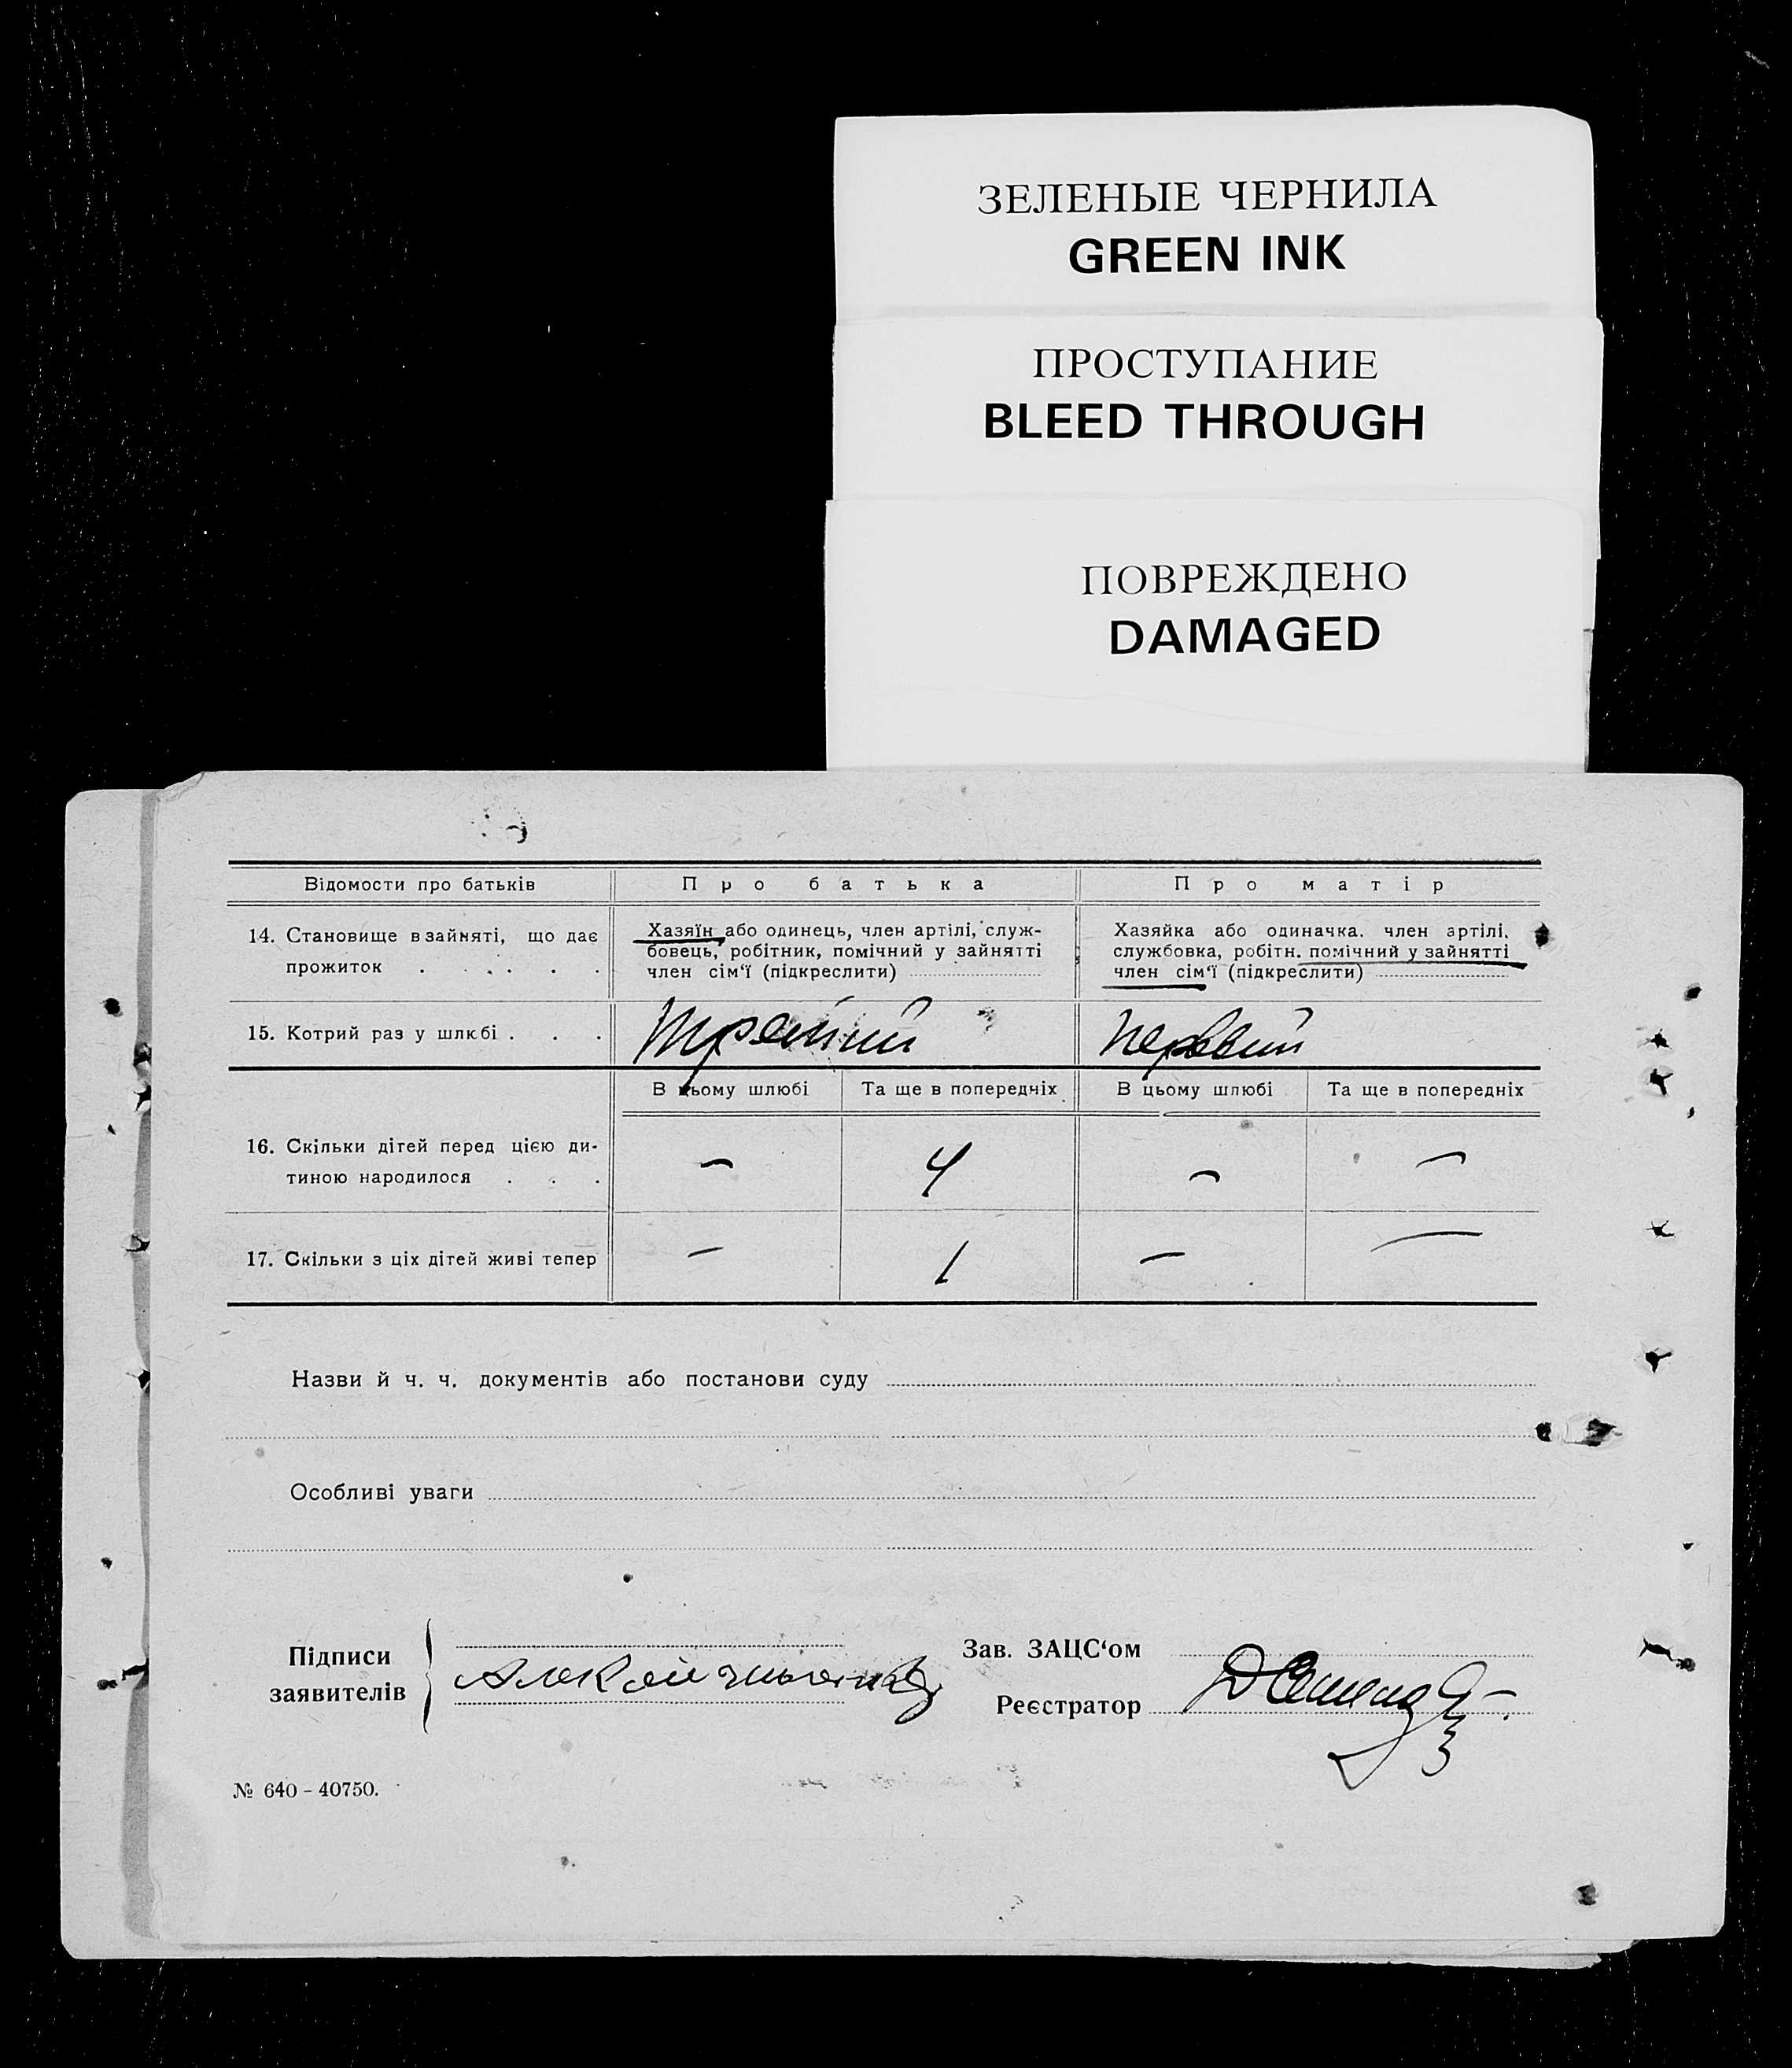 ЗЕЛЕНЫЕ ЧЕРНИЛА
GREEN INK
ПРОСТУПАНИЕ
BLEED THROUGH
ПОВРЕЖДЕНО
DAMAGED
Відомости про батьків Про батька Про матір
14. Становище в зайняті, що дає
прожиток . . . . . .
Хазяїн або одинець, член артілі, служ-
бовець, робітник, помічний у зайнятті
член сім‘ї (підкреслити)
Хазяйка або одиначка, член артілі,
службовка, робітн. помічний у зайнятті
член сім‘ї (підкреслити)
15. Котрий раз у шлюбі . . . Третий Первый
В цьому шлюбі Та ще в попередніх В цьому шлюбі Та ще в попередніх
16. Скільки дітей перед цією ди-
тиною народилося . . . — 4 — —
17. Скільки з ціх дітей живі тепер — 1 — —
Назви й ч. ч. документів або постанови суду
Особливі уваги
Підписи
заявителів
Зав. ЗАЦС‘ом
Реєстратор
№ 640 – 40750.